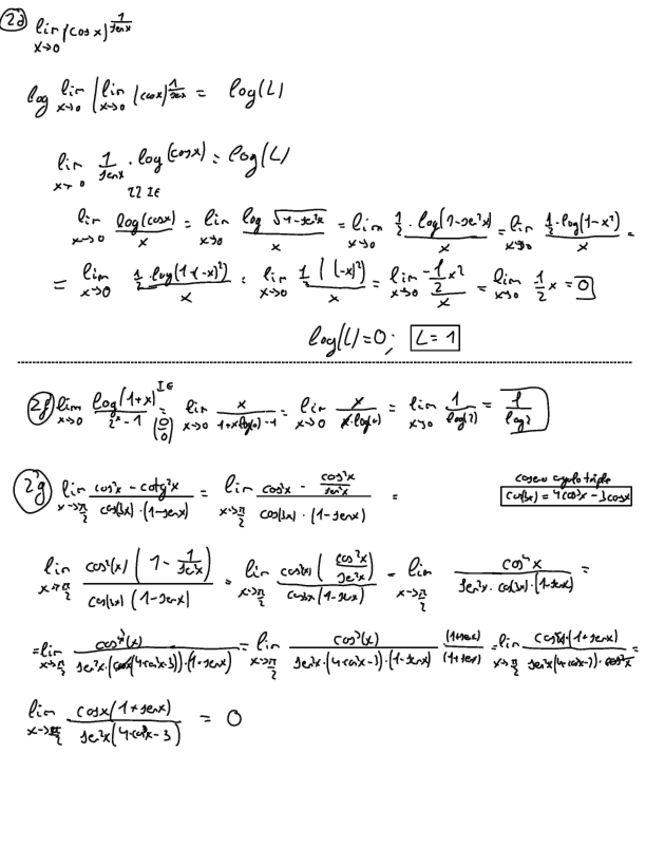 2d) lim x→0 (cos x)^(1/sen x)
log lim x→0 | lim x→0 (cos x)^(1/sen x) = log(L)
lim x→0 1/sen x · log(cos x) = log(L)
IE
lim x→0 log(cos x)/x = lim x→0 log √(1-se²x) / x = lim x→0 ½·log(1-se²x)/x = lim x→0 ½·log(1-x²)/x =
= lim x→0 ½·log(1+(-x)²)/x = lim x→0 ½ (-x)²/x = lim x→0 -½x²/x = lim x→0 ½x = 0
log(L)=0; L=1
2f) lim x→0 log(1+x)/(2^x - 1) = (0/0) IE lim x→0 x/(1+x log(2)-1) = lim x→0 x/(x·log(2)) = lim x→0 1/log(2) = 1/log 2
2g) lim x→π/2 (cos²x - cotg²x)/(cos(3x)·(1-senx)) = lim x→π/2 (cos²x - cos²x/sen²x)/(cos(3x)·(1-senx)) =
coseno angulo triple
cos(3x) = 4cos³x - 3cosx
lim x→π/2 cos²(x)(1 - 1/se²x)/(cos(3x)(1-senx)) = lim x→π/2 cos²(x)(cos²x/se²x)/(cos3x(1-senx)) = lim x→π/2 cos⁴x/(sen²x·cos(3x)·(1-senx)) =
= lim x→π/2 cos⁴(x)/(se²x·(cosx(4cos²x-3))·(1-senx)) = lim x→π/2 cos³(x)/(se²x·(4cos²x-3)·(1-senx)) (1+senx)/(1+senx) = lim x→π/2 cos³x(1+senx)/(se²x(4cos²x-3)·cos²x) =
lim x→π/2 cosx(1+senx)/(se²x(4cos²x-3)) = 0